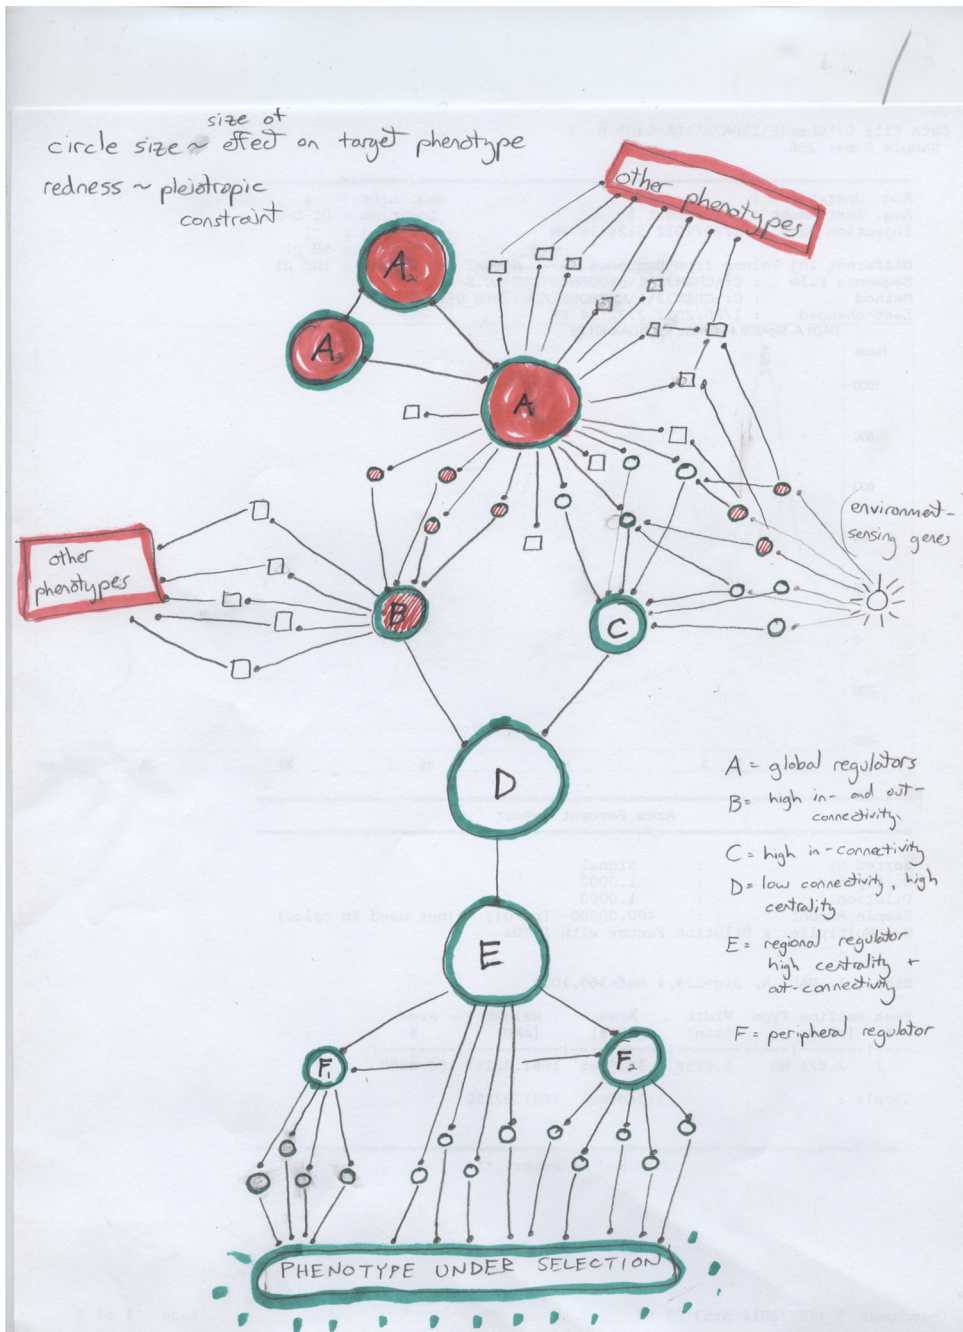 size of
circle size ~ effect on target phenotype
redness ~ pleiotropic
constraint
other
phenotypes
A₂
A₃
A
environment-
sensing genes
other
phenotypes
B
C
D
A = global regulators
B = high in- and out-
connectivity.
C = high in-connectivity
D = low connectivity, high
centrality
E = regional regulator
high centrality +
out-connectivity
F = peripheral regulator
E
F₁
F₂
PHENOTYPE UNDER SELECTION